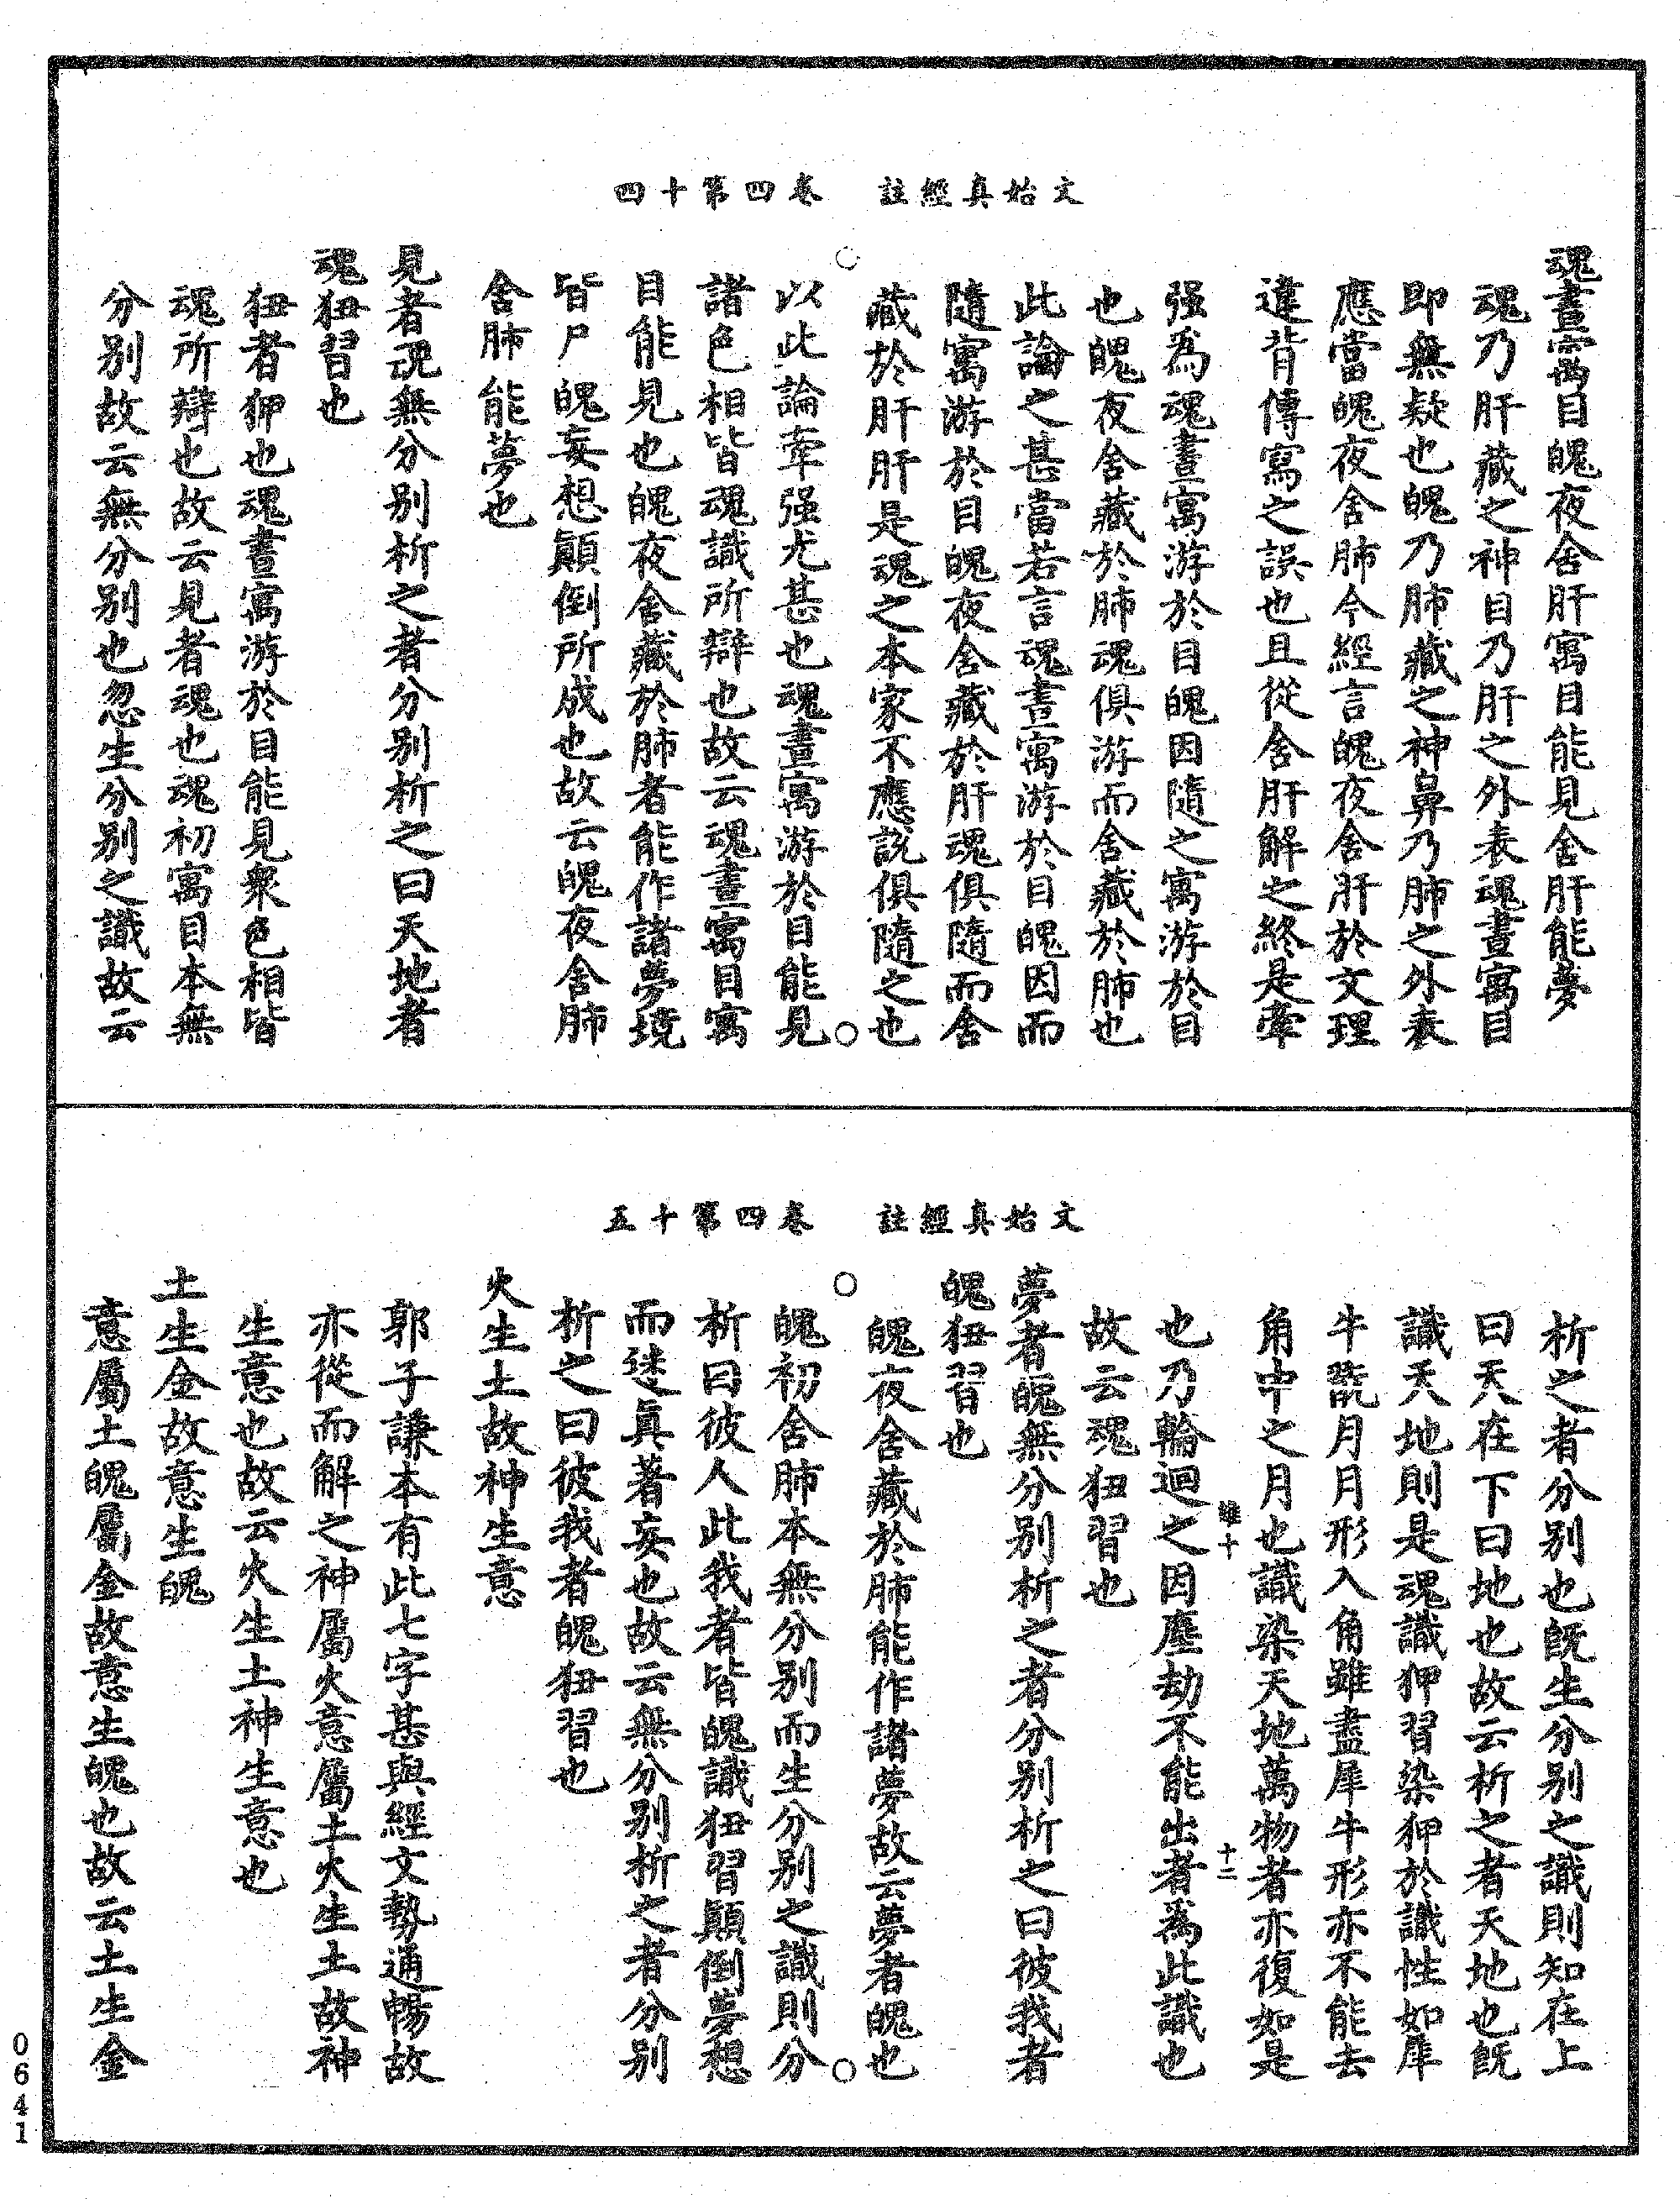 文始真經註　卷四第十四
魂晝寓目魄夜舍肝寓目能見舍肝能夢
魂乃肝藏之神目乃肝之外表魂晝寓目
即無疑也魄乃肺藏之神鼻乃肺之外表
應當魄夜舍肺今經言魄夜舍肝於文理
違背傳寫之誤也且從舍肝解之終是牽
强爲魂晝寓游於目魄因隨之寓游於目
也魄夜舍藏於肺魂俱游而舍藏於肺也
此論之甚當若言魂晝寓游於目魄因而
隨寓游於目魄夜舍藏於肝魂俱隨而舍
藏於肝肝是魂之本家不應說俱隨之也
以此論牽强尤甚也魂晝寓游於目能見
諸色相皆魂識所辯也故云魂晝寓目寓
目能見也魄夜舍藏於肺者能作諸夢境
皆尸魄妄想顚倒所成也故云魄夜舍肺
舍肺能夢也
見者魂無分别析之者分别析之曰天地者
魂狃習也
狃者狎也魂晝寓游於目能見衆色相皆
魂所辯也故云見者魂也魂初寓目本無
分别故云無分别也忽生分别之識故云
文始真經註　卷四第十五
析之者分别也旣生分别之識則知在上
曰天在下曰地也故云析之者天地也旣
識天地則是魂識狎習染狎於識性如犀
牛翫月月形入角雖盡犀牛形亦不能去
角中之月也識染天地萬物者亦復如是
雖十　十二
也乃輪迴之因塵劫不能出者爲此識也
故云魂狃習也
夢者魄無分别析之者分别析之曰彼我者
魄狃習也
魄夜舍藏於肺能作諸夢故云夢者魄也
魄初舍肺本無分别而生分别之識則分
析曰彼人此我者皆魄識狃習顚倒夢想
而迷眞著妄也故云無分别析之者分别
析之曰彼我者魄狃習也
火生土故神生意
郭子謙本有此七字甚與經文勢通暢故
亦從而解之神屬火意屬土火生土故神
生意也故云火生土神生意也
土生金故意生魄
意屬土魄屬金故意生魄也故云土生金
0641